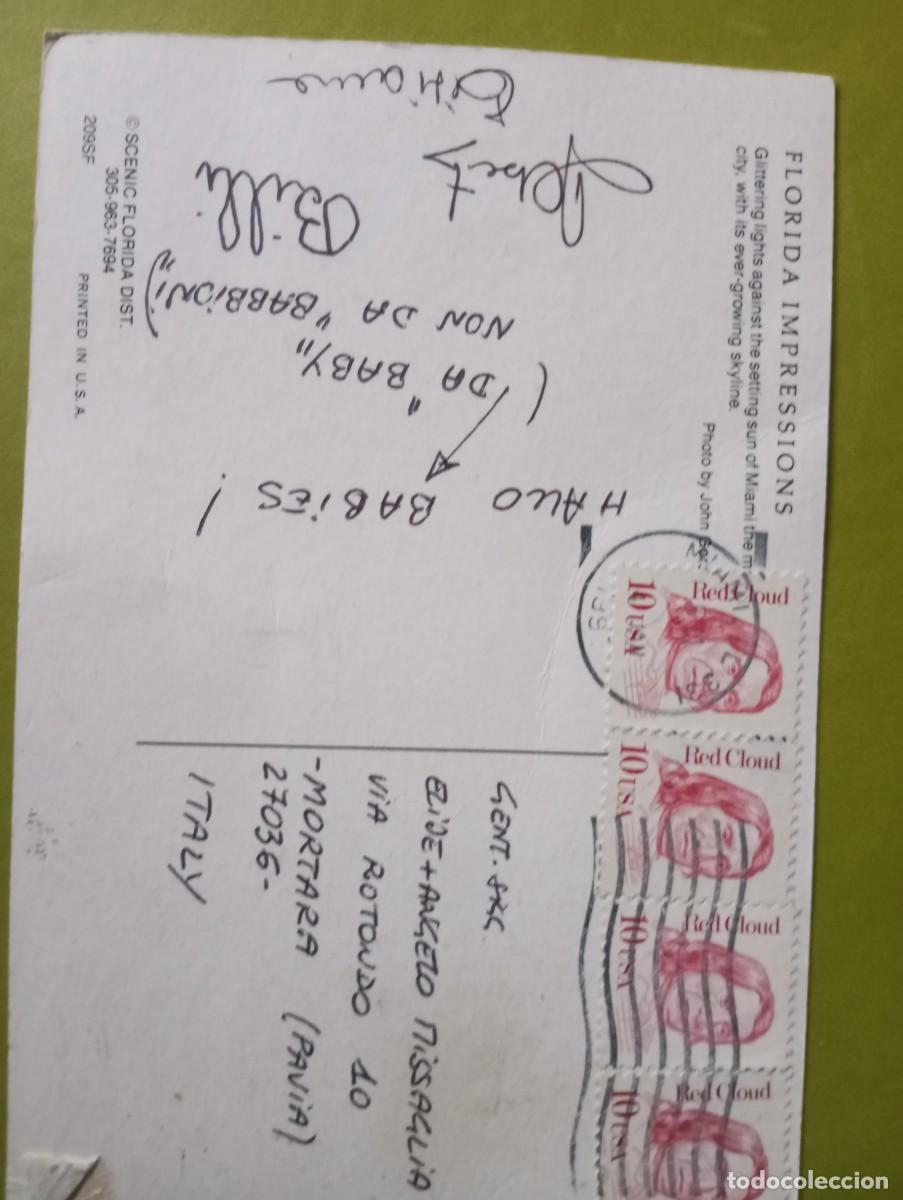 FLORIDA IMPRESSIONS
Glittering lights against the setting sun of Miami the m
city, with its ever-growing skyline.
Photo by John
BABIES !
( DA "BABY"
NON DA "BABBIONi")
Billi
© SCENIC FLORIDA DIST.
305-963-7694
209SF
PRINTED IN U.S.A.
GENT.
ELIDE + ANGELO MISSAGLIA
VIA ROTONDO 10
-MORTARA (PAVIA)
27036-
ITALY
Red Cloud
10 USA
Red Cloud
10 USA
Red Cloud
10 USA
Red Cloud
10 USA
todocoleccion